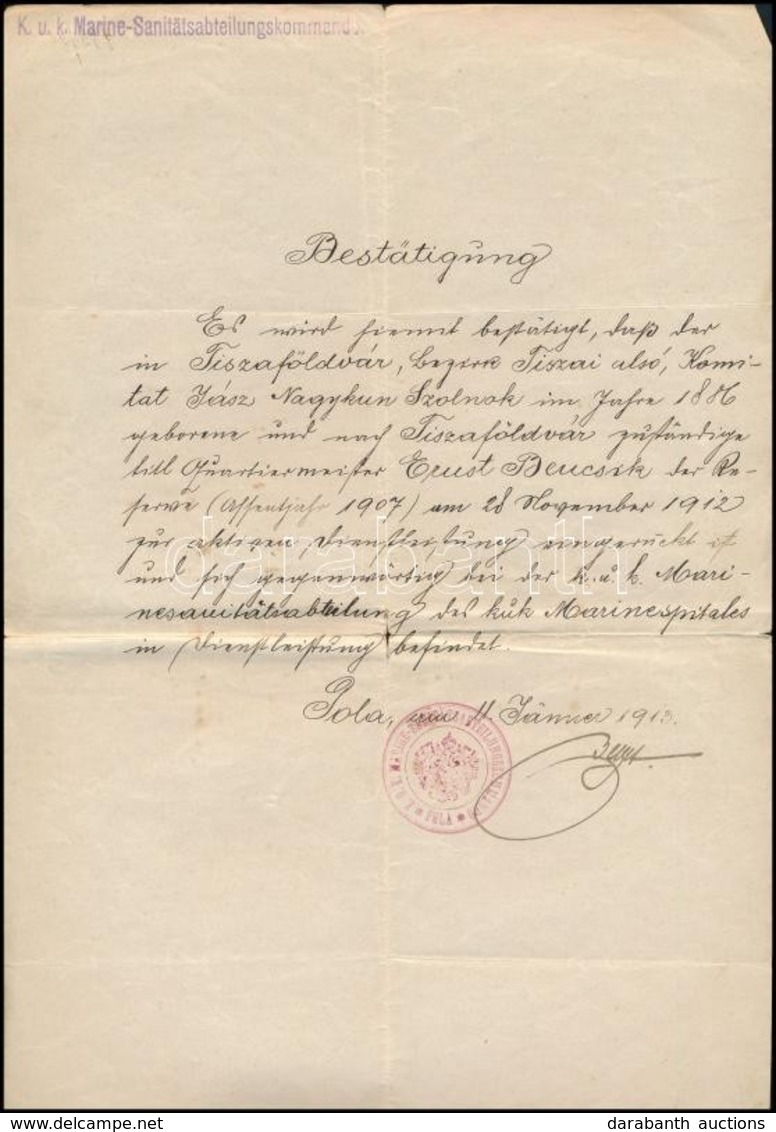 K. u. k. Marine-Sanitätsabteilungskommando.
Bestätigung
Es wird hiemit bestätigt, daß der
in Tiszaföldvár, Bezirk Tiszai alsó, Komi-
tat Jász Nagykun Szolnok im Jahre 1886
geborene und nach Tiszaföldvár zuständige
titl Quartiermeister Ernst Bencsik der Re-
serve (Assentjahr 1907) am 28 November 1912
zur aktiven Dienstleistung eingerückt ist
und sich gegenwärtig bei der k. u. k. Mari-
nesanitätsabteilung des kuk Marinespitales
in Dienstleistung befindet.
Pola, am 11. Jänner 1913.
K. U. K. MARINE-SANITÄTSABTEILUNGSKOMMANDO
POLA
darabanth
delcampe.net
darabanth auctions